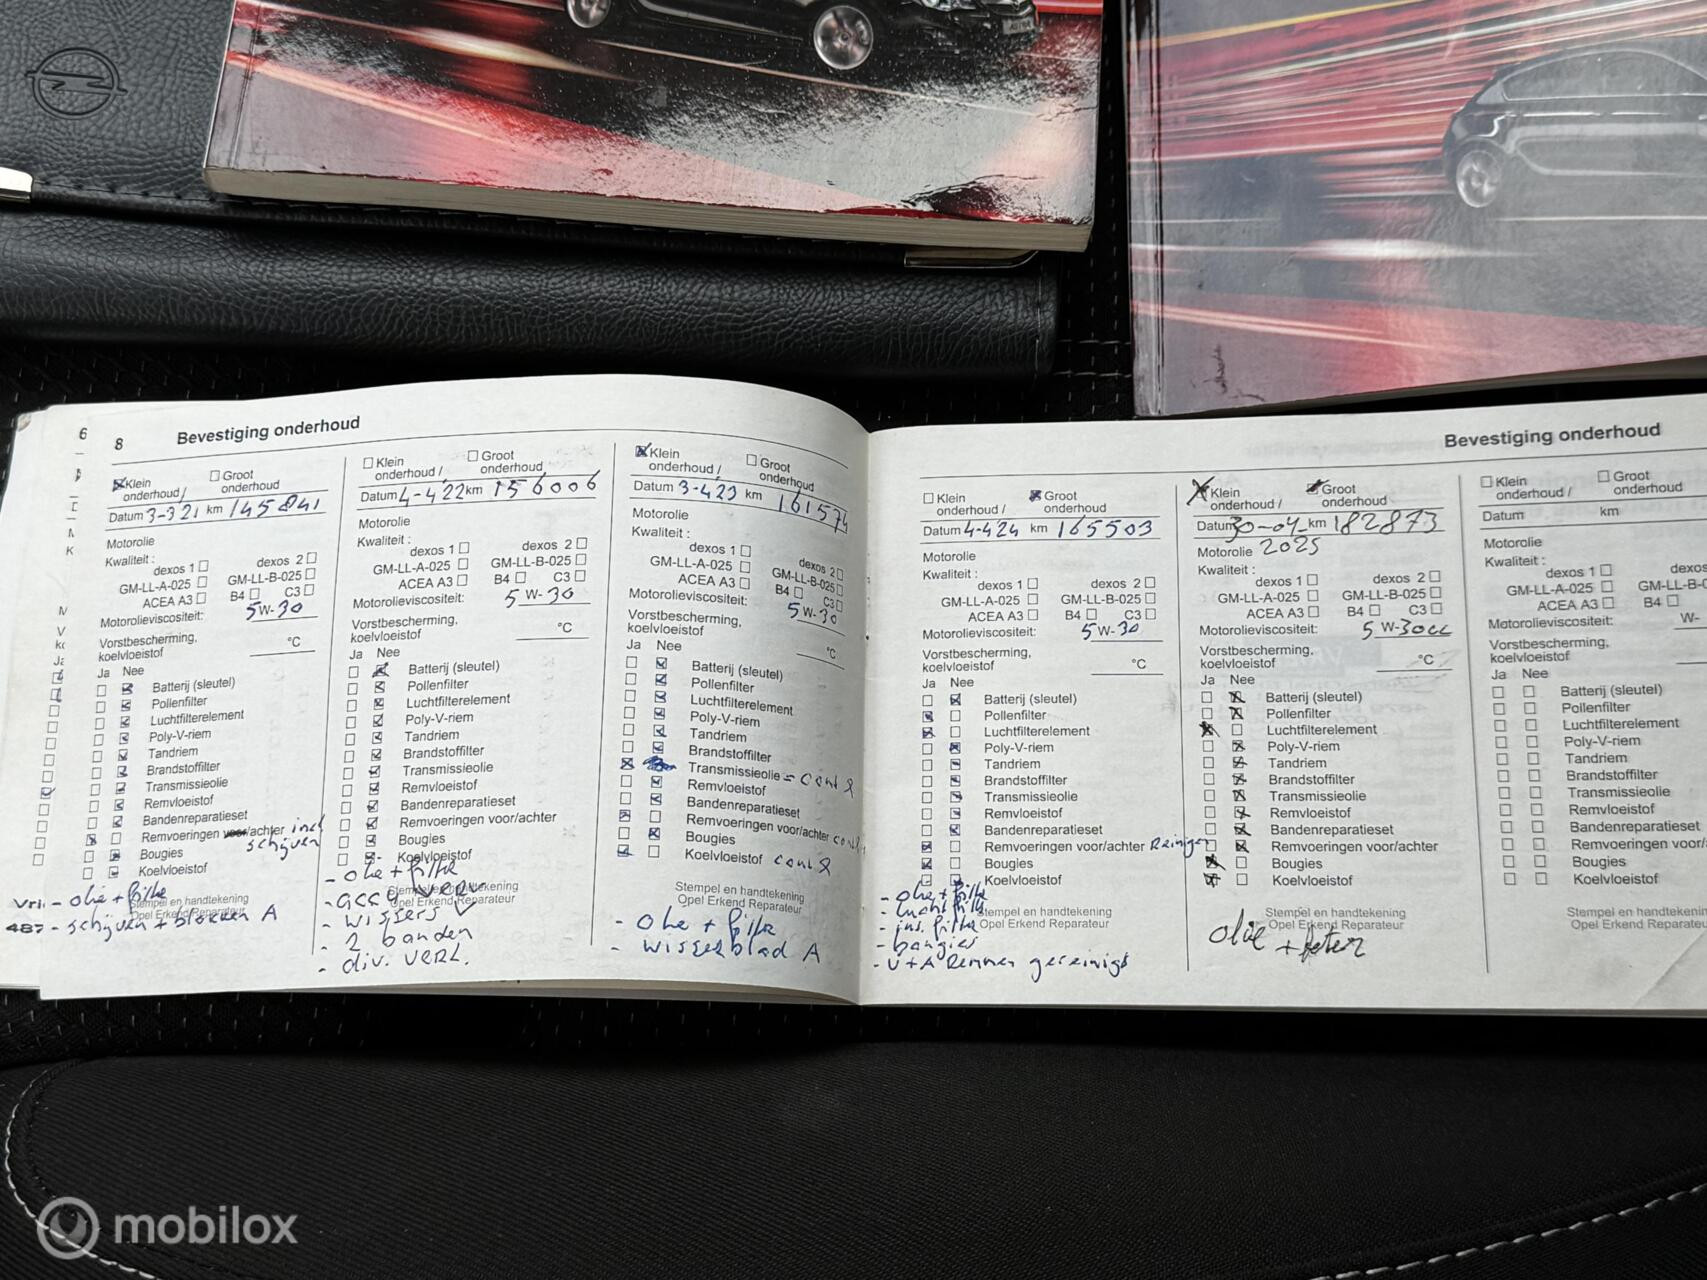 6
8 Bevestiging onderhoud
Klein onderhoud / Groot onderhoud
Datum 3-3 21 km 145841
Motorolie
Kwaliteit :
dexos 1 dexos 2
GM-LL-A-025 GM-LL-B-025
ACEA A3 B4 C3
Motorolieviscositeit: 5 W-30
Vorstbescherming,
koelvloeistof °C
Ja Nee
Batterij (sleutel)
Pollenfilter
Luchtfilterelement
Poly-V-riem
Tandriem
Brandstoffilter
Transmissieolie
Remvloeistof
Bandenreparatieset
Remvoeringen voor/achter incl
schijven
Bougies
Koelvloeistof
- olie + filter
Stempel en handtekening
Opel Erkend Reparateur
487 - schijven + blokken A
Klein onderhoud / Groot onderhoud
Datum 4-4 22 km 156006
Motorolie
Kwaliteit :
dexos 1 dexos 2
GM-LL-A-025 GM-LL-B-025
ACEA A3 B4 C3
Motorolieviscositeit: 5 W-30
Vorstbescherming,
koelvloeistof °C
Ja Nee
Batterij (sleutel)
Pollenfilter
Luchtfilterelement
Poly-V-riem
Tandriem
Brandstoffilter
Transmissieolie
Remvloeistof
Bandenreparatieset
Remvoeringen voor/achter
Bougies
Koelvloeistof
- olie + filter
Stempel en handtekening
- accu verv
Opel Erkend Reparateur
- wissers
- 2 banden
- div. verl.
Klein onderhoud / Groot onderhoud
Datum 3-4 23 km 161574
Motorolie
Kwaliteit :
dexos 1 dexos 2
GM-LL-A-025 GM-LL-B-025
ACEA A3 B4 C3
Motorolieviscositeit: 5 W-30
Vorstbescherming,
koelvloeistof °C
Ja Nee
Batterij (sleutel)
Pollenfilter
Luchtfilterelement
Poly-V-riem
Tandriem
Brandstoffilter
Transmissieolie = cont
Remvloeistof
Bandenreparatieset
Remvoeringen voor/achter
Bougies
Koelvloeistof cont
Stempel en handtekening
Opel Erkend Reparateur
- olie + filter
- wisserblad A
Bevestiging onderhoud
Klein onderhoud / Groot onderhoud
Datum 4-4 24 km 165503
Motorolie
Kwaliteit :
dexos 1 dexos 2
GM-LL-A-025 GM-LL-B-025
ACEA A3 B4 C3
Motorolieviscositeit: 5 W-30
Vorstbescherming,
koelvloeistof °C
Ja Nee
Batterij (sleutel)
Pollenfilter
Luchtfilterelement
Poly-V-riem
Tandriem
Brandstoffilter
Transmissieolie
Remvloeistof
Bandenreparatieset
Remvoeringen voor/achter Reinigen
Bougies
Koelvloeistof
- olie + filter
- lucht filter
Stempel en handtekening
Opel Erkend Reparateur
- bougies
- V + A Remmen gereinigd
Klein onderhoud / Groot onderhoud
Datum 30-04- km 182873
Motorolie 2025
Kwaliteit :
dexos 1 dexos 2
GM-LL-A-025 GM-LL-B-025
ACEA A3 B4 C3
Motorolieviscositeit: 5 W-30
Vorstbescherming,
koelvloeistof °C
Ja Nee
Batterij (sleutel)
Pollenfilter
Luchtfilterelement
Poly-V-riem
Tandriem
Brandstoffilter
Transmissieolie
Remvloeistof
Bandenreparatieset
Remvoeringen voor/achter
Bougies
Koelvloeistof
Stempel en handtekening
Opel Erkend Reparateur
olie +
Klein onderhoud / Groot onderhoud
Datum km
Motorolie
Kwaliteit :
dexos 1 dexos
GM-LL-A-025 GM-LL-B-0
ACEA A3 B4
Motorolieviscositeit: W-
Vorstbescherming,
koelvloeistof
Ja Nee
Batterij (sleutel)
Pollenfilter
Luchtfilterelement
Poly-V-riem
Tandriem
Brandstoffilter
Transmissieolie
Remvloeistof
Bandenreparatieset
Remvoeringen voor/
Bougies
Koelvloeistof
Stempel en handtekening
Opel Erkend Reparateur
mobilox